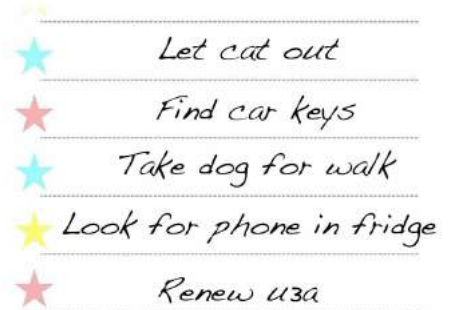 Let cat out
Find car keys
Take dog for walk
Look for phone in fridge
Renew u3a